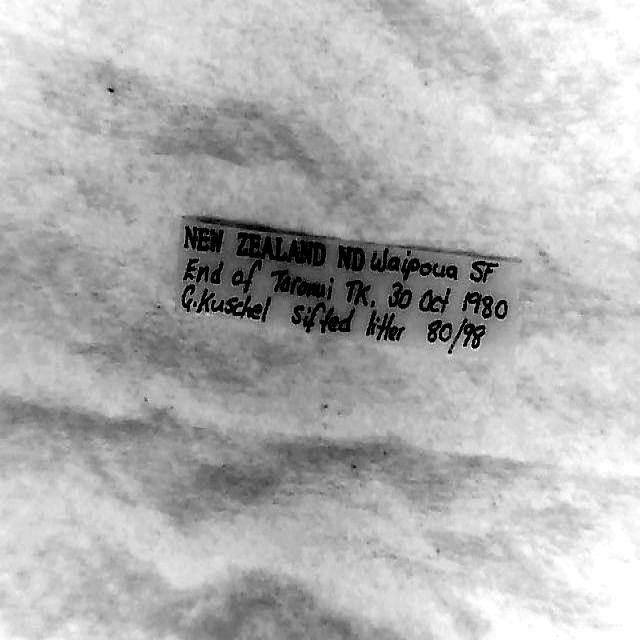 NEW ZEALAND ND Waipoua SF
End of Toronui TK. 30 Oct 1980
G.Kuschel sifted litter 80/98